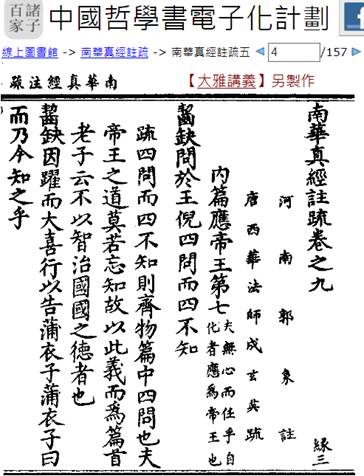 諸子百家
中國哲學書電子化計劃
線上圖書館 -> 南華真經註疏 -> 南華真經註疏五
4
/157
南華真經注疏
【大雅講義】另製作
南華真經註疏卷之九
緣三
河南郭象註
唐西華法師成玄英疏
內篇應帝王第七
夫無心而任乎自
化者應為帝王也
齧缺問於王倪四問而四不知
疏四問而四不知則齊物篇中四問也夫
帝王之道莫若忘知故以此義而為篇首
老子云不以智治國國之德者也
齧缺因躍而大喜行以告蒲衣子蒲衣子曰
而乃今知之乎